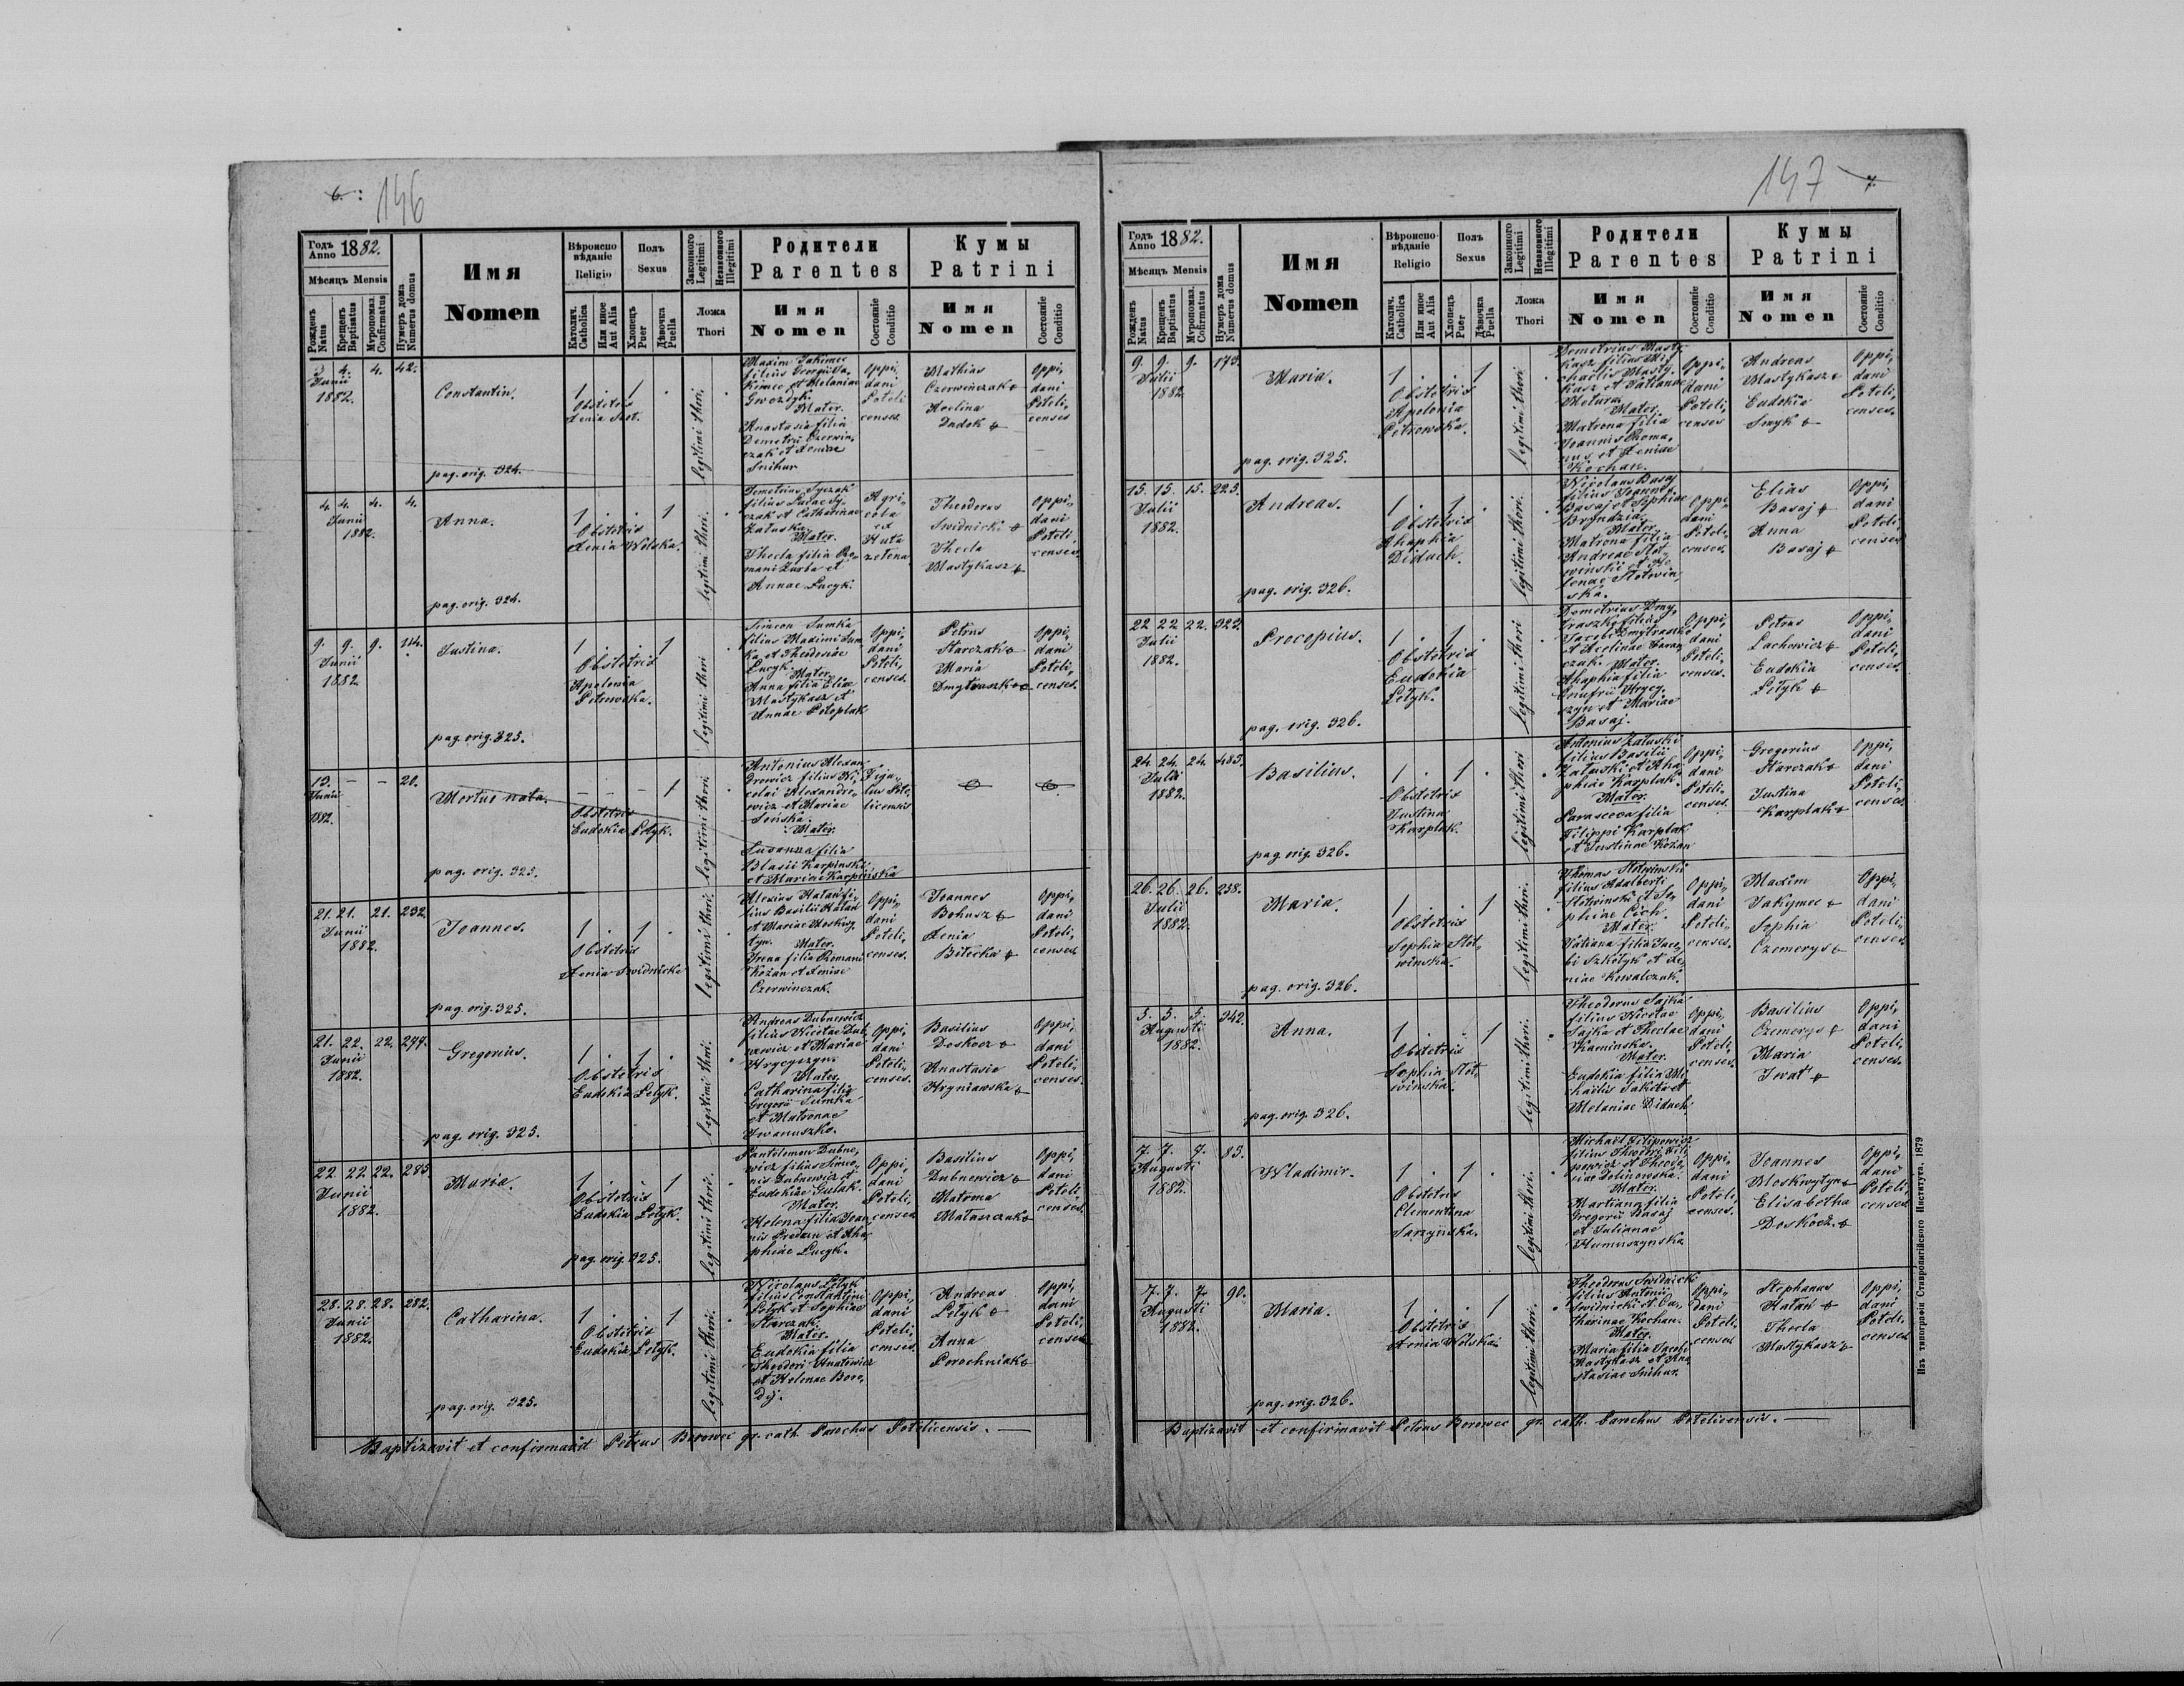 6. 146
Годъ Anno 1882.
Мѣсяцъ Mensis
Рожденъ Natus
Крещенъ Baptisatus
Муропомаз. Cofirmatus
Нумеръ дома Numerus domus
Имя Nomen
Вѣроисповѣданіе Religio
Католич. Catholica
Или иное Aut Alia
Полъ Sexus
Хлопецъ Puer
Дѣвочка Puella
Законного Legitimi
Незаконного Illegitimi
Ложа Thori
Родители Parentes
Имя Nomen
Состояніе Conditio
Кумы Patrini
Имя Nomen
Состояніе Conditio
4. 4. 42.
Junii
1882.
Constantin.
1 . 1 .
Obstetrix
Xenia
legitimi thori.
Maxim Jakimec
filius Georgii Ja,
kimec et Melaniae
Gwozdyk.
Mater.
Anastasia filia
Demetrii Czerwin,
czak et Xeniae
Snihur
Oppi,
dani
Poteli
censes.
Mathias
Czerwinczak
Acelina
Dudok
Oppi,
dani
Poteli,
censes
pag. orig. 324.
4. 4. 4. 4.
Junii
1882.
Anna.
1 . . 1
Obstetrix
Xenia Wolska.
legitimi thori.
Demetrius Syczak
filius Lucae Sy-
czak et Catharinae
Załuska.
Mater.
Thecla filia Ro-
mani Zurba et
Annae Lucyk.
Agri-
cola
ex
Huta
zelena
Theodorus
Swidnicki
Thecla
Mastykasz
Oppi,
dani
Poteli,
censes
pag. orig. 324.
9. 9. 9. 214.
Junii
1882
Justina.
1 . . 1
Obstetrix
Apolonia
Petrowska.
legitimi thori
Simeon Sumka
filius Maximi Sum
ka et Theodosiae
Lucyk. Mater.
Anna filia Eliae
Mastykasz et
Annae Potoplak
Oppi,
dani
Poteli,
censes.
Petrus
Harczak
Maria
Dmytraszko
Oppi,
dani
Poteli,
censes.
pag. orig. 325.
13. – – 20.
Junii
1882.
Mortuo nata.
– – – 1
Obstetrix
Eudokia Potyk.
legitimi thori.
Antonius Alexan
drowicz filius Ni
colai Alexandro-
wicz et Mariae
Sońska.
Mater.
Susanna filia
Blasii Karpinski
et Mariae Karpinska
Figu-
lus Pote
licensis
pag. orig. 325.
21. 21. 21. 232.
Junii
1882.
Joannes.
1 . 1 .
Obstetrix
Xenia Swidnicka
legitimi thori.
Alexius Hałan fi-
lius Basilii Hałan
et Mariae Moskwy
tyn. Mater.
Irena filia Romani
Kozan et Xeniae
Czerwinczak.
Oppi,
dani
Poteli,
censes.
Joannes
Bohusz
Xenia
Bilecka
Oppi,
dani
Poteli,
censes
pag. orig. 325.
21. 22. 22. 277.
Junii
1882.
Gregorius.
1 . 1 .
Obstetrix
Eudokia Potyk.
legitimi thori.
Andreas Dubnewicz
filius Nicetae Dub,
newicz et Mariae
Hrycyszyn.
Mater.
Catharina filia
Gregorii Sumka
et Matronae
Iwanuszko.
Oppi,
dani
Poteli,
censes.
Basilius
Doskocz
Anastasia
Hryniawska
Oppi,
dani
Poteli,
censes.
pag. orig. 325.
22 22. 22. 285.
Junii
1882.
Maria.
1 . . 1
Obstetrix
Eudokia Potyk.
legitimi thori.
Pantelemon Dubne,
wicz filius Simeo,
nis Dubnewicz et
Eudokiae Gulak.
Mater.
Helena filia Joan
nis Predzin et Aha,
phiae Lucyk.
Oppi,
dani
Poteli,
censes
Basilius
Dubnewicz
Matrona
Matwczak
Oppi,
dani
Poteli
censes.
pag. orig. 325.
28. 28. 28. 282.
Junii
1882.
Catharina.
1 . . 1
Obstetrix
Eudokia Potyk.
legitimi thori.
Nicolaus Potyk
filius Constantini
Potyk et Sophiae
Starczak.
Mater.
Eudokia filia
Theodori Hnatewicz
et Helenae Boro,
dij.
Oppi,
dani
Poteli,
censes.
Andreas
Potyk
Anna
Porochniak
Oppi,
dani
Poteli,
censes
pag. orig. 325.
Baptizavit et confirmavit Petrus Borowec gr. cath. Parochus Potelicensis. —
147 7.
Годъ Anno 1882.
Мѣсяцъ Mensis
Рожденъ Natus
Крещенъ Baptisatus
Муропомаз. Cofirmatus
Нумеръ дома Numerus domus
Имя Nomen
Вѣроисповѣданіе Religio
Католич. Catholica
Или иное Aut Alia
Полъ Sexus
Хлопецъ Puer
Дѣвочка Puella
Законного Legitimi
Незаконного Illegitimi
Ложа Thori
Родители Parentes
Имя Nomen
Состояніе Conditio
Кумы Patrini
Имя Nomen
Состояніе Conditio
9. 9. 9. 173.
Julii
1882
Maria.
1 . . 1
Obstetrix
Apolonia
Petrowska.
legitimi thori
Demetrius Masty-
kasz filius Mi-
chaelis Masty-
kasz et Tatianae
Metura.
Mater.
Matrona filia
Joannis Roma,
nus et Xeniae
Kochan.
Oppi-
dani
Poteli,
censes
Andreas
Mastykasz
Eudokia
Smyk
Oppi,
dani
Poteli,
censes.
pag. orig. 325.
15. 15. 15. 223.
Julii
1882.
Andreas.
1 . 1 .
Obstetrix
Ahaphia
Diduch.
legitimi thori.
Nicolaus Basaj
filius Joannis
Basaj et Sophiae
Bryndzia.
Mater.
Matrona filia
Andreae Stot-
winskii et He
lenae Stotwin
ska.
Oppi-
dani
Poteli-
censes.
Elias
Basaj
Anna
Basaj
Oppi,
dani
Poteli-
censes
pag. orig. 326.
22 22 22. 323.
Julii
1882.
Procopius.
1 . 1 .
Obstetrix
Eudokia
Potyk.
legitimi thori
Demetrius Dmy,
traszko filius
Jacobi Dmytraszko
et Acelinae Haran
czak. Mater.
Ahaphia filia
Onufrii Hrycy-
szyn et Mariae
Basaj.
Oppi,
dani
Poteli-
censes.
Petrus
Lachowicz
Eudokia
Potyk
Oppi,
dani
Poteli-
censes.
pag. orig. 326.
24. 24. 24. 485.
Julii
1882.
Basilius.
1 . 1 .
Obstetrix
Justina
Karplak.
legitimi thori
Antonius Załuski
filius Basilii
Załuski et Aha-
phiae Karplak.
Mater.
Parasceva filia
Filippi Karplak
et Justinae Kozan
Oppi-
dani
Poteli-
censes.
Gregorius
Harczak
Justina
Karplak
Oppi,
dani
Poteli-
censes.
pag. orig. 326.
26. 26. 26. 258.
Julii
1882.
Maria.
1 . . 1
Obstetrix
Sophia Stot-
winska.
legitimi thori.
Thomas Stotwinski
filius Adalberti
Stotwinski et So-
phiae Cich.
Mater.
Tatiana filia Jaco-
bi Szkolyk et Xe-
niae Kowalczuk.
Oppi-
dani
Poteli-
censes.
Maxim
Jakymec
Sophia
Czemerys
Oppi-
dani
Poteli-
censes
pag. orig. 326.
5. 5. 5. 342.
Augusti
1882.
Anna.
1 . . 1
Obstetrix
Sophia Stot,
winska.
legitimi thori.
Theodorus Sajka
filius Nicolae
Sajka et Theclae
Kaminska.
Mater.
Eudokia filia Mi-
chaelis Saketa et
Melaniae Diduch
Oppi,
dani
Poteli,
censes.
Basilius
Czemerys
Maria
Iwat
Oppi,
dani
Poteli-
censes.
pag. orig. 326.
7. 7. 7. 85.
Augusti
1882.
Wladimir.
1 . 1 .
Obstetrix
Clementina
Sarzynska.
legitimi thori.
Michael Filipowicz
filius Theodori Fili
powicz et Theodo-
siae Dolinowska.
Mater.
Martiana filia
Gregorii Basaj
et Julianae
Humuszynska
Oppi-
dani
Poteli,
censes.
Joannes
Moskwytyn
Elisabetha
Doskocz.
Oppi,
dani
Poteli,
censes
7. 7. 7. 90.
Augusti
1882.
Maria.
1 . . 1
Obstetrix
Xenia Wolska.
legitimi thori.
Theodorus Swidnicki
filius Antonii
Swidnicki et Ca-
tharinae Kochan.
Mater.
Maria filia Jacobi
Mastykasz et Ana
stasiae Snihur.
Oppi-
dani
Poteli-
censes
Stephanus
Hałan
Thecla
Mastykasz
Oppi,
dani
Poteli-
censes
pag. orig. 326.
Baptizavit et confirmavit Petrus Borowec gr. cath. Parochus Potelicensis. —
Изъ типографіи Ставропигійского Института. 1879